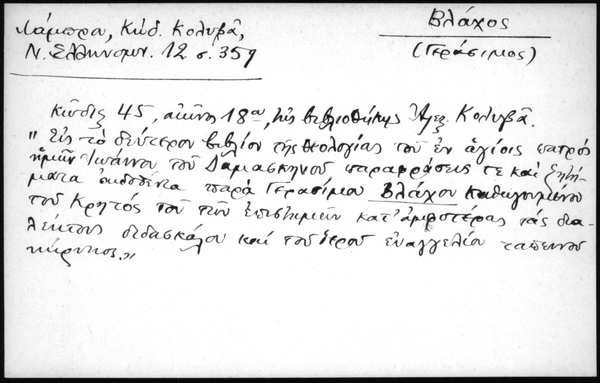 Λάμπρου, Κώδ. Κολυβᾶ,
Ν. Ἑλληνομν. 12 σ. 359
Βλάχος
(Γεράσιμος)
Κῶδιξ 45, αἰῶνος 18ου, τῆς βιβλιοθήκης Ἀλεξ. Κολυβᾶ.
"Εἰς τὸ δεύτερον βιβλίον τῆς θεολογίας τοῦ ἐν ἁγίοις πατρὸς
ἡμῶν Ἰωάννου τοῦ Δαμασκηνοῦ παραφράσεις τε καὶ ζητή-
ματα ἐκδοθέντα παρὰ Γερασίμου Βλάχου καθηγουμένου
τοῦ Κρητὸς τοῦ τῶν ἐπιστημῶν κατ' ἀμφοτέρας τὰς δια-
λέκτους διδασκάλου καὶ τοῦ ἱεροῦ εὐαγγελίου ταπεινοῦ
κήρυκος."